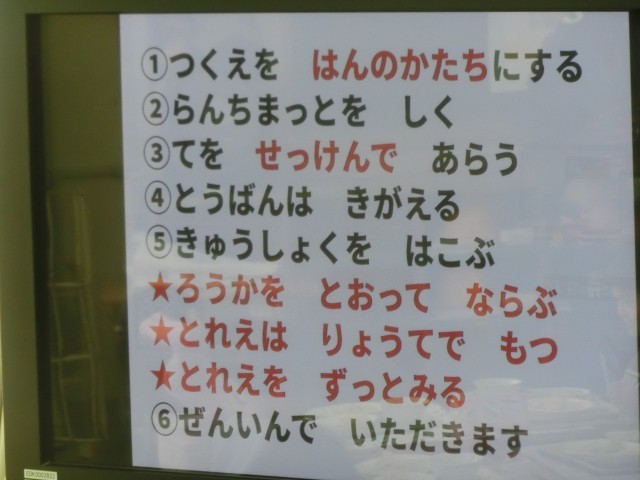 ①つくえを　はんのかたちにする
②らんちまっとを　しく
③てを　せっけんで　あらう
④とうばんは　きがえる
⑤きゅうしょくを　はこぶ
★ろうかを　とおって　ならぶ
★とれえは　りょうてで　もつ
★とれえを　ずっとみる
⑥ぜんいんで　いただきます